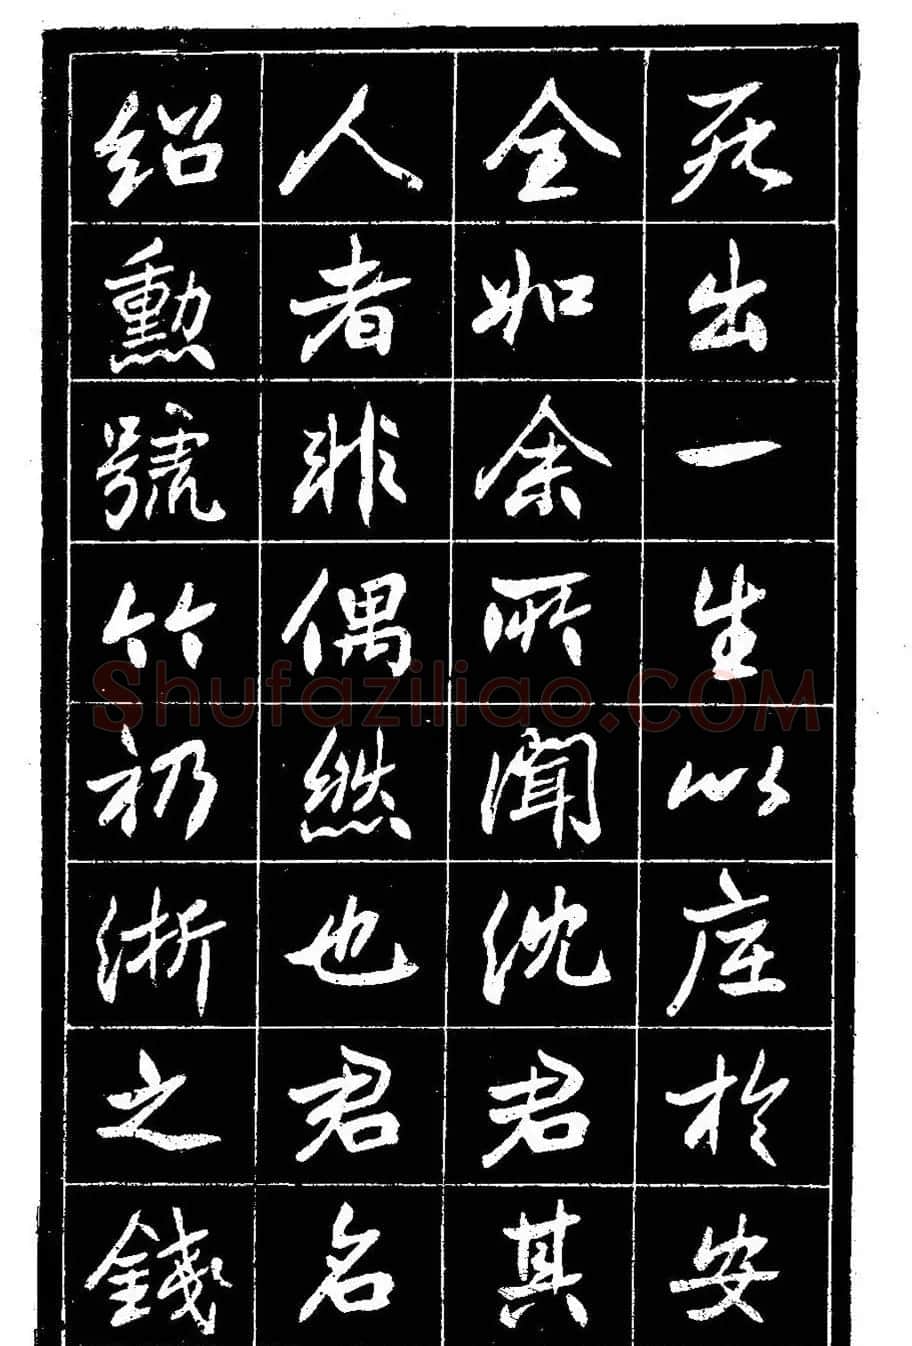 死出一生以於安
全如余所聞沈君其
人者非偶然也君名
紹勳號竹礽浙之錢
Shufaziliao.COM